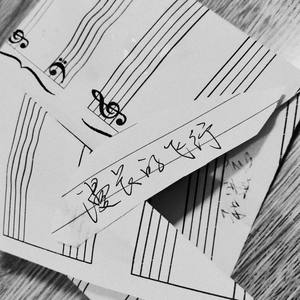 漫长的飞行